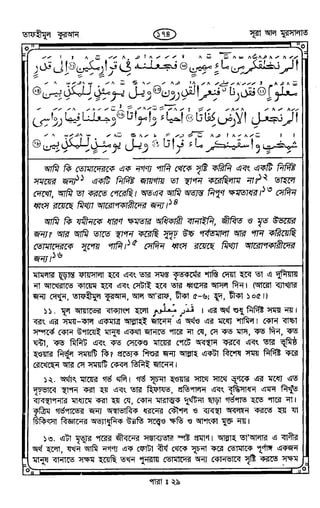 তাফহীমুল কুরআন
১৭৪
সূরা আল মুরসালাত
اَلَمْ نَخْلُقْكُّمْ مِّنْ مَّآءٍ مَّهِيْنٍ ۞ فَجَعَلْنٰهُ فِيْ قَرَارٍ مَّكِيْنٍ ۞ اِلٰى قَدَرٍ
مَّعْلُوْمٍ ۞ فَقَدَرْنَا ۖ فَنِعْمَ الْقٰدِرُوْنَ ۞ وَيْلٌ يَّوْمَئِذٍ لِّلْمُكَذِّبِيْنَ ۞
اَلَمْ نَجْعَلِ الْاَرْضَ كِفَاتًا ۞ اَحْيَآءً وَّاَمْوَاتًا ۞ وَّجَعَلْنَا فِيْهَا رَوَاسِيَ
شٰمِخٰتٍ وَّاَسْقَيْنٰكُمْ مَّآءً فُرَاتًا ۞ وَيْلٌ يَّوْمَئِذٍ لِّلْمُكَذِّبِيْنَ ۞
আমি কি তোমাদেরকে এক নগণ্য পানি থেকে সৃষ্টি করিনি এবং একটি নির্দিষ্ট
সময়ের জন্য১১ একটি নির্দিষ্ট জায়গায় তা স্থাপন করেছিলাম না?১২ তাহলে
দেখো, আমি তা করতে পেরেছি। অতএব আমি অত্যন্ত নিপুণ ক্ষমতাধর।১৩ সেদিন
ধ্বংস রয়েছে মিথ্যা আরোপকারীদের জন্য।১৪
আমি কি যমীনকে ধারণ ক্ষমতার অধিকারী বানাইনি, জীবিত ও মৃত উভয়ের
জন্য? আর আমি তাতে স্থাপন করেছি সুদৃঢ় উচ্চ পর্বতমালা আর পান করিয়েছি
তোমাদেরকে সুপেয় পানি।১৫ সেদিন ধ্বংস রয়েছে মিথ্যা আরোপকারীদের
জন্য।১৬
মামলার চূড়ান্ত ফায়সালা হবে এবং তার সমস্ত কৃতকর্মের শাস্তি দেয়া হবে তা এ দুনিয়ায়
না আখেরাতে কায়েম হবে এবং সেটাই হবে তার ধ্বংসের আসল দিন। (আরো ব্যাখ্যার
জন্য দেখুন, তাফহীমুল কুরআন, আল আ'রাফ, টীকা ৫-৬; হূদ, টীকা ১০৫।)
১১. মূল আয়াতের বাক্যাংশ হলো قَدَرٍ مَّعْلُوْمٍ। এর অর্থ শুধু নির্দিষ্ট সময় নয়।
বরং এর সময়-কাল একমাত্র আল্লাহই জানেন এ অর্থও এর মধ্যে শামিল। কোন বাচ্চা
সম্পর্কে কোন উপায়েই মানুষ একথা জানতে পারে না যে, সে কত মাস, কত দিন, কত
ঘন্টা, কত মিনিট এবং কত সেকেণ্ড মায়ের পেটে অবস্থান করবে এবং তার ভূমিষ্ঠ
হওয়ার নির্ভুল সময়টি কি। প্রত্যেক শিশুর জন্য আল্লাহ একটা বিশেষ সময় নির্দিষ্ট করে
রেখেছেন আর সে সময়টি কেবল তিনিই জানেন।
১২. অর্থাৎ মায়ের গর্ভ থলি। গর্ভ সূচনা হওয়ার সাথে সাথে ভ্রূণকে এর মধ্যে এত
দৃঢ়ভাবে স্থাপন করা হয় এবং তার হিফাযত, প্রতিপালন এবং বৃদ্ধিসাধন এমন নিখুঁত
ব্যবস্থাপনার মাধ্যমে করা হয় যে, কোন মারাত্মক দুর্ঘটনা ছাড়া গর্ভপাত হতে পারে না।
কৃত্রিম গর্ভপাতের জন্য অস্বাভাবিক ধরনের কৌশল ও ব্যবস্থা অবলম্বন করতে হয় যা
চিকিৎসা বিজ্ঞানের অত্যাধুনিক উন্নতি সত্ত্বেও ক্ষতি ও আশংকা মুক্ত নয়।
১৩. এটা মৃত্যুর পরের জীবনের সম্ভাব্যতার স্পষ্ট প্রমাণ। আল্লাহ তা'আলার এ বাণীর
অর্থ হলো, যখন আমি নগণ্য এক ফোটা বীর্য থেকে সূচনা করে তোমাকে পূর্ণাঙ্গ একজন
মানুষ বানাতে সক্ষম হয়েছি তখন পুনরায় তোমাদের অন্য কোনভাবে সৃষ্টি করতে সক্ষম
পারা ঃ ২৯